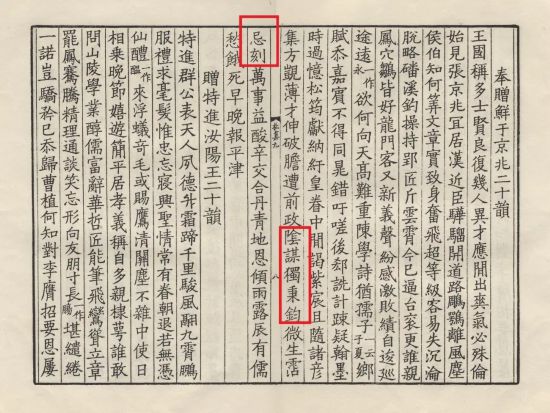 奉贈鮮于京兆二十韻
王國稱多士賢良復幾人異才應間出爽氣必殊倫
始見張京兆宜居漢近臣驊騮開道路鵰鶚離風塵
侯伯知何文章實致身奮飛超等級容易失沉淪
脫略磻溪釣操持郢匠斤雲霄今已逼台袞更誰親
鳳穴鶵皆好龍門客又新義聲紛感激敗績自逡巡
途遠一作永欲何向天高難重陳學詩猶孺子一云子夏鄉
賦忝嘉賓不得同晁錯吁嗟後郄詵計疎疑翰墨
時過憶松筠獻納紆皇眷中間謁紫宸且隨諸彥
集方覬薄才伸破膽遭前政陰謀獨秉鈞微生霑
八
忌刻萬事益酸辛交合丹青地恩傾雨露辰有儒
愁餓死早晚報平津
贈特進汝陽王二十韻
特進群公表天人夙德升霜蹄千里駿風翮九霄鵬
服禮求毫髮惟忠忘寢興聖情常有眷朝退若無憑
仙醴一作醞來浮蟻奇毛或賜鷹清關塵不雜中使日
相乗晚節嬉遊簡平居孝義稱自多親棣萼誰敢
問山陵學業醇儒富辭華哲匠能筆飛鸞聳立章
罷鳳騫騰精理通談笑忘形向友朋寸長一作腸堪繾綣
一諾豈驕矜已忝歸曹植何知對李膺招要恩屢